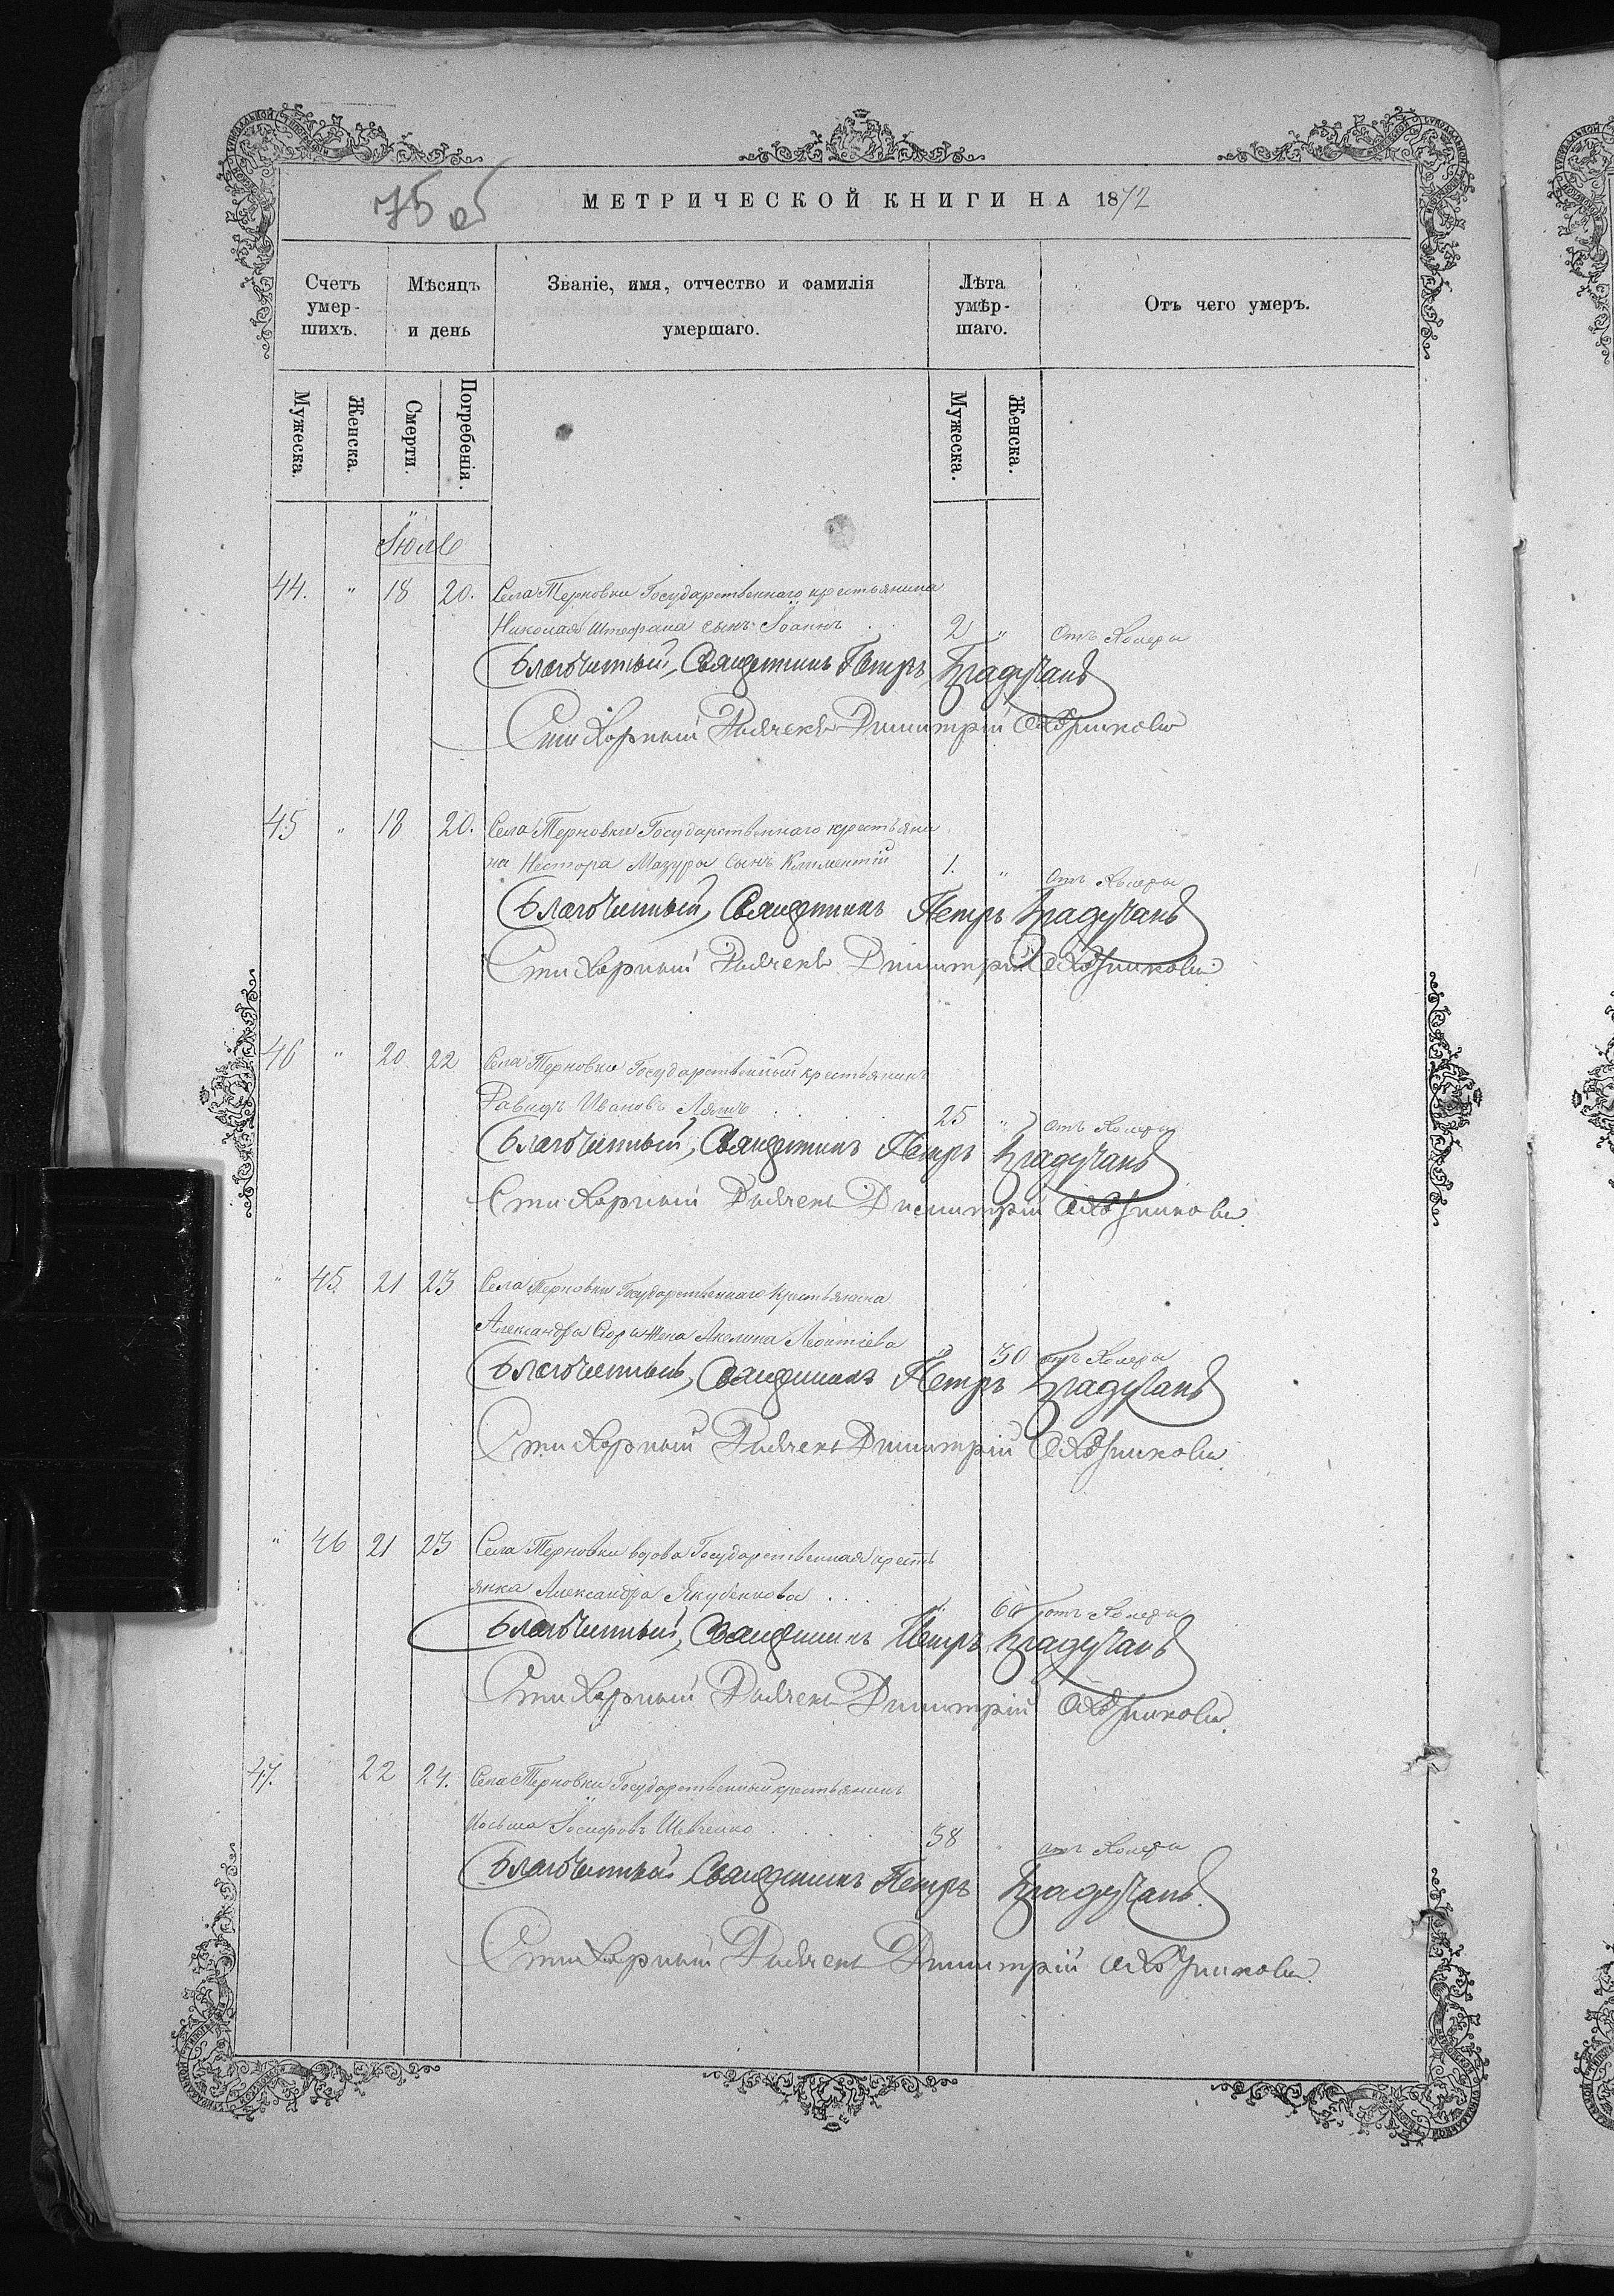 75 об
МЕТРИЧЕСКОЙ КНИГИ НА 1872
Счетъ умер-шихъ.
Мѣсяцъ и день
Званіе, имя, отчество и фамилія умершаго.
Лѣта умѣр-шаго.
Отъ чего умеръ.
Мужеска. Женска. Смерти. Погребенія. Мужеска. Женска.
Іюль
44. " 18 20. Села Терновки Государственнаго крестьянина
Николая Штефана сынъ Іоаннъ . . 2 " Отъ Холеры
Благочинный, Священникъ Петръ
Стихарный Дьячекъ Димитрій
45 " 18 20. Села Терновки Государственнаго крестьяни
на Нестора Мазура сынъ Климентій 1. " Отъ Холеры
Благочинный, Священникъ Петръ
Стихарный Дьячекъ Димитрій
46 " 20 22 Села Терновки Государственный крестьянинъ
Давидъ Ивановъ 25 " Отъ Холеры
Благочинный, Священникъ Петръ
Стихарный Дьячекъ Димитрій
" 45. 21 23 Села Терновки Государственнаго крестьянина
Александра жена Акелина Леонтіева " 30 отъ Холеры
Благочинный, Священникъ Петръ
Стихарный Дьячекъ Димитрій
" 46 21 23 Села Терновки вдова Государственная кресть
янка Александра Якубенкова . . . " 60 отъ Холеры
Благочинный, Священникъ Петръ
Стихарный Дьячекъ Димитрій
47. 22 24. Села Терновки Государственный крестьянинъ
Косьма Іосифовъ Шевченко . . . 38 " отъ Холеры
Благочинный Священникъ Петръ
Стихарный Дьячекъ Димитрій